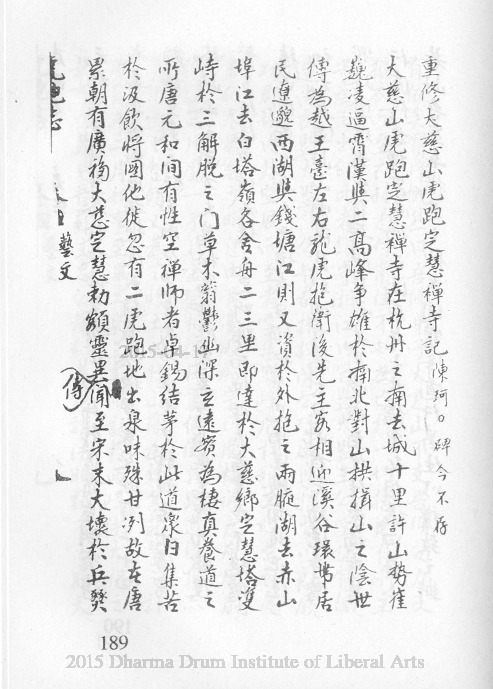 重修大慈山虎跑定慧禅寺記 陳珂。碑今不存
大慈山虎跑定慧禅寺在杭州之南去城十里許山勢崔
巍凌逼霄漢與二高峰争雄於南北對山拱揖山之陰世
傳為越王臺左右龍虎抱衛後先主客相迎溪谷環帶居
民遼邈西湖與錢塘江則又資於外抱之兩腋湖去赤山
埠江去白塔嶺各舍舟二三里即達於大慈鄉定慧塔雙
峙於三解脱之门草木蓊鬱幽深立遠實為棲真養道之
所唐元和间有性空禅師者卓錫结茅於此道衆日集苦
於汲飲將圖他徙忽有二虎跑地出泉味殊甘冽故在唐
累朝有廣福大慈定慧勅額靈異聞至宋末大壞於兵燹
傳
虎跑志
藝文
2015-04-1
189
2015 Dharma Drum Institute of Liberal Arts